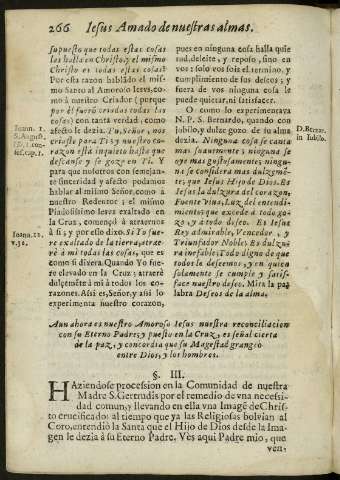 266 Iesus Amado de nuestras almas.
supuesto que todas estas cosas
las halla en Christo, y el mismo
Christo es todas estas cosas?
Por esta razon hablādo el mis-
mo Santo al Amoroso Iesvs, co-
mo à nuestro Criador (porque
por èl fueró criadas todas las
cosas) con tanta verdad, como
afecto le dezia. Tu, Señor, nos
criaste para Ti; y nuestro co-
razon està inquieto hasta que
descanse y se goze en Ti. Y
para que nosotros con semejan-
te sinceridad y afecto podamos
hablar al mismo Señor, como à
nuestro Redentor; el mismo
Piadosissimo Iesvs exaltado en
la Cruz, començò à atraernos
à sì; y por esso dixo. Si Yo fue-
re exaltado de la tierra, atrae-
rè à mi todas las cosas, que es
como si dixera. Quando Yo fue-
re elevado en la Cruz; atraerè
dulcemēte à mi à todos los co-
razones. Assi es, Señor, y assi lo
experimenta nuestro corazon,
Ioann. 1.
S. August.
lib. 1. con-
fes. cap. 1.
Ioann. 12.
v. 32.
pues en ninguna cosa halla quie
tud, deleite, y reposo, sino en
vos: solo vos sois el termino, y
cumplimiento de sus deseos; y
fuera de vos ninguna cosa le
puede quietar, ni satisfacer.
O como lo experimentava
N. P. S. Bernardo, quando con
jubilo, y dulce gozo de su alma
dezia. Ninguna cosa se canta
mas suavemente; ninguna se
oye mas gustosamente; ningu-
na se considera mas dulzemē-
te; que Iesus Hijo de Dios. Es
Iesus la dulzura del corazon,
Fuente viva, Luz del entendi-
miento; que excede à todo go-
zo, y à todo deseo. Es Iesus
Rey admirable, Vencedor, y
Triunfador Noble; Es dulzu-
ra inefable; Todo digno de que
todos le deseemos, y en quien
solamente se cumple y satis-
face nuestro deseo. Mira la pa-
labra Deseos de la alma.
D. Bernar.
in Iubilo.
Aun ahora es nuestro Amoroso Iesus nuestra reconciliacion
con su Eterno Padre; y puesto en la Cruz, es señal cierta
de la paz, y concordia que su Magestad grangeò
entre Dios, y los hombres.
§. III.
HAziendose procession en la Comunidad de nuestra
Madre S. Gertrudis por el remedio de vna necessi-
dad comun, y llevando en ella vna Imagē de Chris-
to crucificado: al tiempo que ya las Religiosas bolvian al
Coro, entendiò la Santa que el Hijo de Dios desde la Ima-
gen le dezia à su Eterno Padre. Vès aqui Padre mio, que
ven-